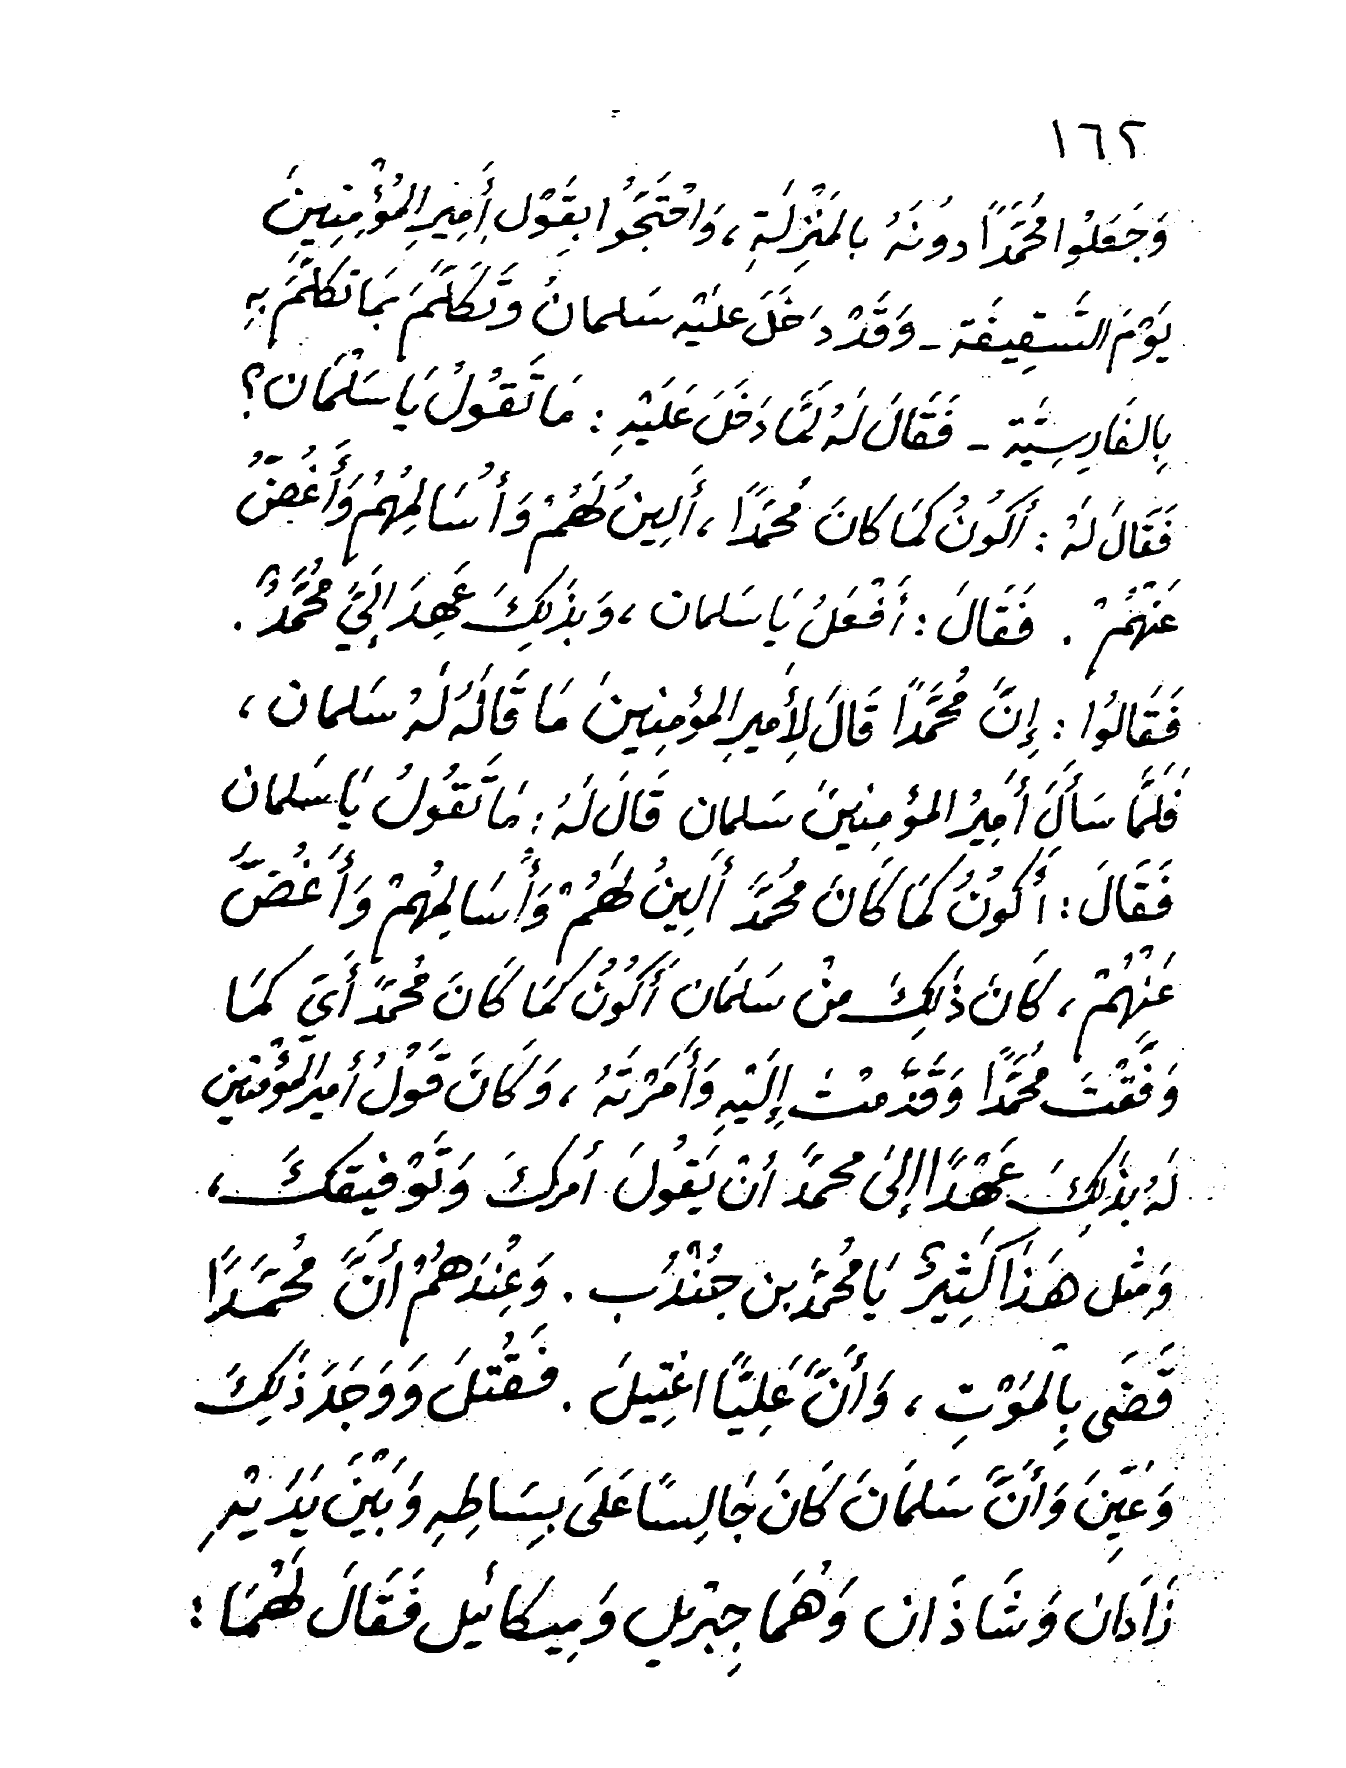 ١٦٢
وَجَعَلُوا مُحَمَّدًا دُونَهُ بِالمَنْزِلَةِ ، وَاحْتَجُّوا بِقَوْلِ أَمِيرِ المُؤْمِنِينَ
يَوْمَ السَّقِيفَة - وَقَدْ دَخَلَ عَلَيْهِ سَلمانُ وَتَكَلَّمَ بِمَا تَكَلَّمَ بِهِ
بِالفَارِسِيَّة - فَقَالَ لَهُ لَمَّا دَخَلَ عَلَيْهِ : مَا تَقُولُ يَا سَلْمَان ؟
فَقَالَ لَهُ : أَكُونُ كَمَا كَانَ مُحَمَّدًا ، أَلِينُ لَهُمْ وَأُسَالِمُهُمْ وَأَغُضُّ
عَنْهُمْ . فَقَالَ : أَفْعَلُ يَا سَلمان ، وَبِذَلِكَ عَهِدَ إِلَيَّ مُحَمَّدٌ .
فَقَالُوا : إِنَّ مُحَمَّدًا قَالَ لِأَمِيرِ المؤمِنِينَ مَا قَالَهُ لَهُ سَلمان ،
فَلَمَّا سَأَلَ أَمِيرُ المؤمِنِينَ سَلمان قَالَ لَهُ : مَا تَقُولُ يَا سَلمان
فَقَالَ : أَكُونُ كَمَا كَانَ مُحَمَّدً أَلِينُ لَهُمْ وَأُسَالِمُهُمْ وَأَغُضُّ
عَنْهُمْ ، كَانَ ذَلِكَ مِنْ سَلمَان أَكُونُ كَمَا كَانَ مُحَمَّدً أَيَ كَمَا
وَفَّقْتَ مُحَمَّدًا وَقَدَّمْتَ إِلَيْهِ وَأَمَرْتَهُ ، وَكَانَ قَوْلُ أَمير المُؤمنين
لَهُ بِذَلِكَ عَهْدًا إِلَىٰ محمدً أنْ يَقُولَ أمركَ وَتَوْفيقكَ ،
وَمِثل هَذَا كَثِيرٌ يَا مُحَمَّدُ بن جُنْدُب . وَعِنْدَهُمْ أَنَّ مُحَمَّدًا
قَضَى بِالمَوْتِ ، وَأَنَّ عَلِيًّا اغتِيلَ . فَقُتلَ وَوَجَدَ ذَلِكَ
وَعَيَّنَ وَأَنَّ سَلمَانَ كَانَ جَالِسًا عَلَى بِسَاطِهِ وَبَيْنَ يَدَيْهِ
زَادَان وَشَاذَان وَهُمَا جِبْريل وَمِيكائيل فَقَالَ لَهُمَا :